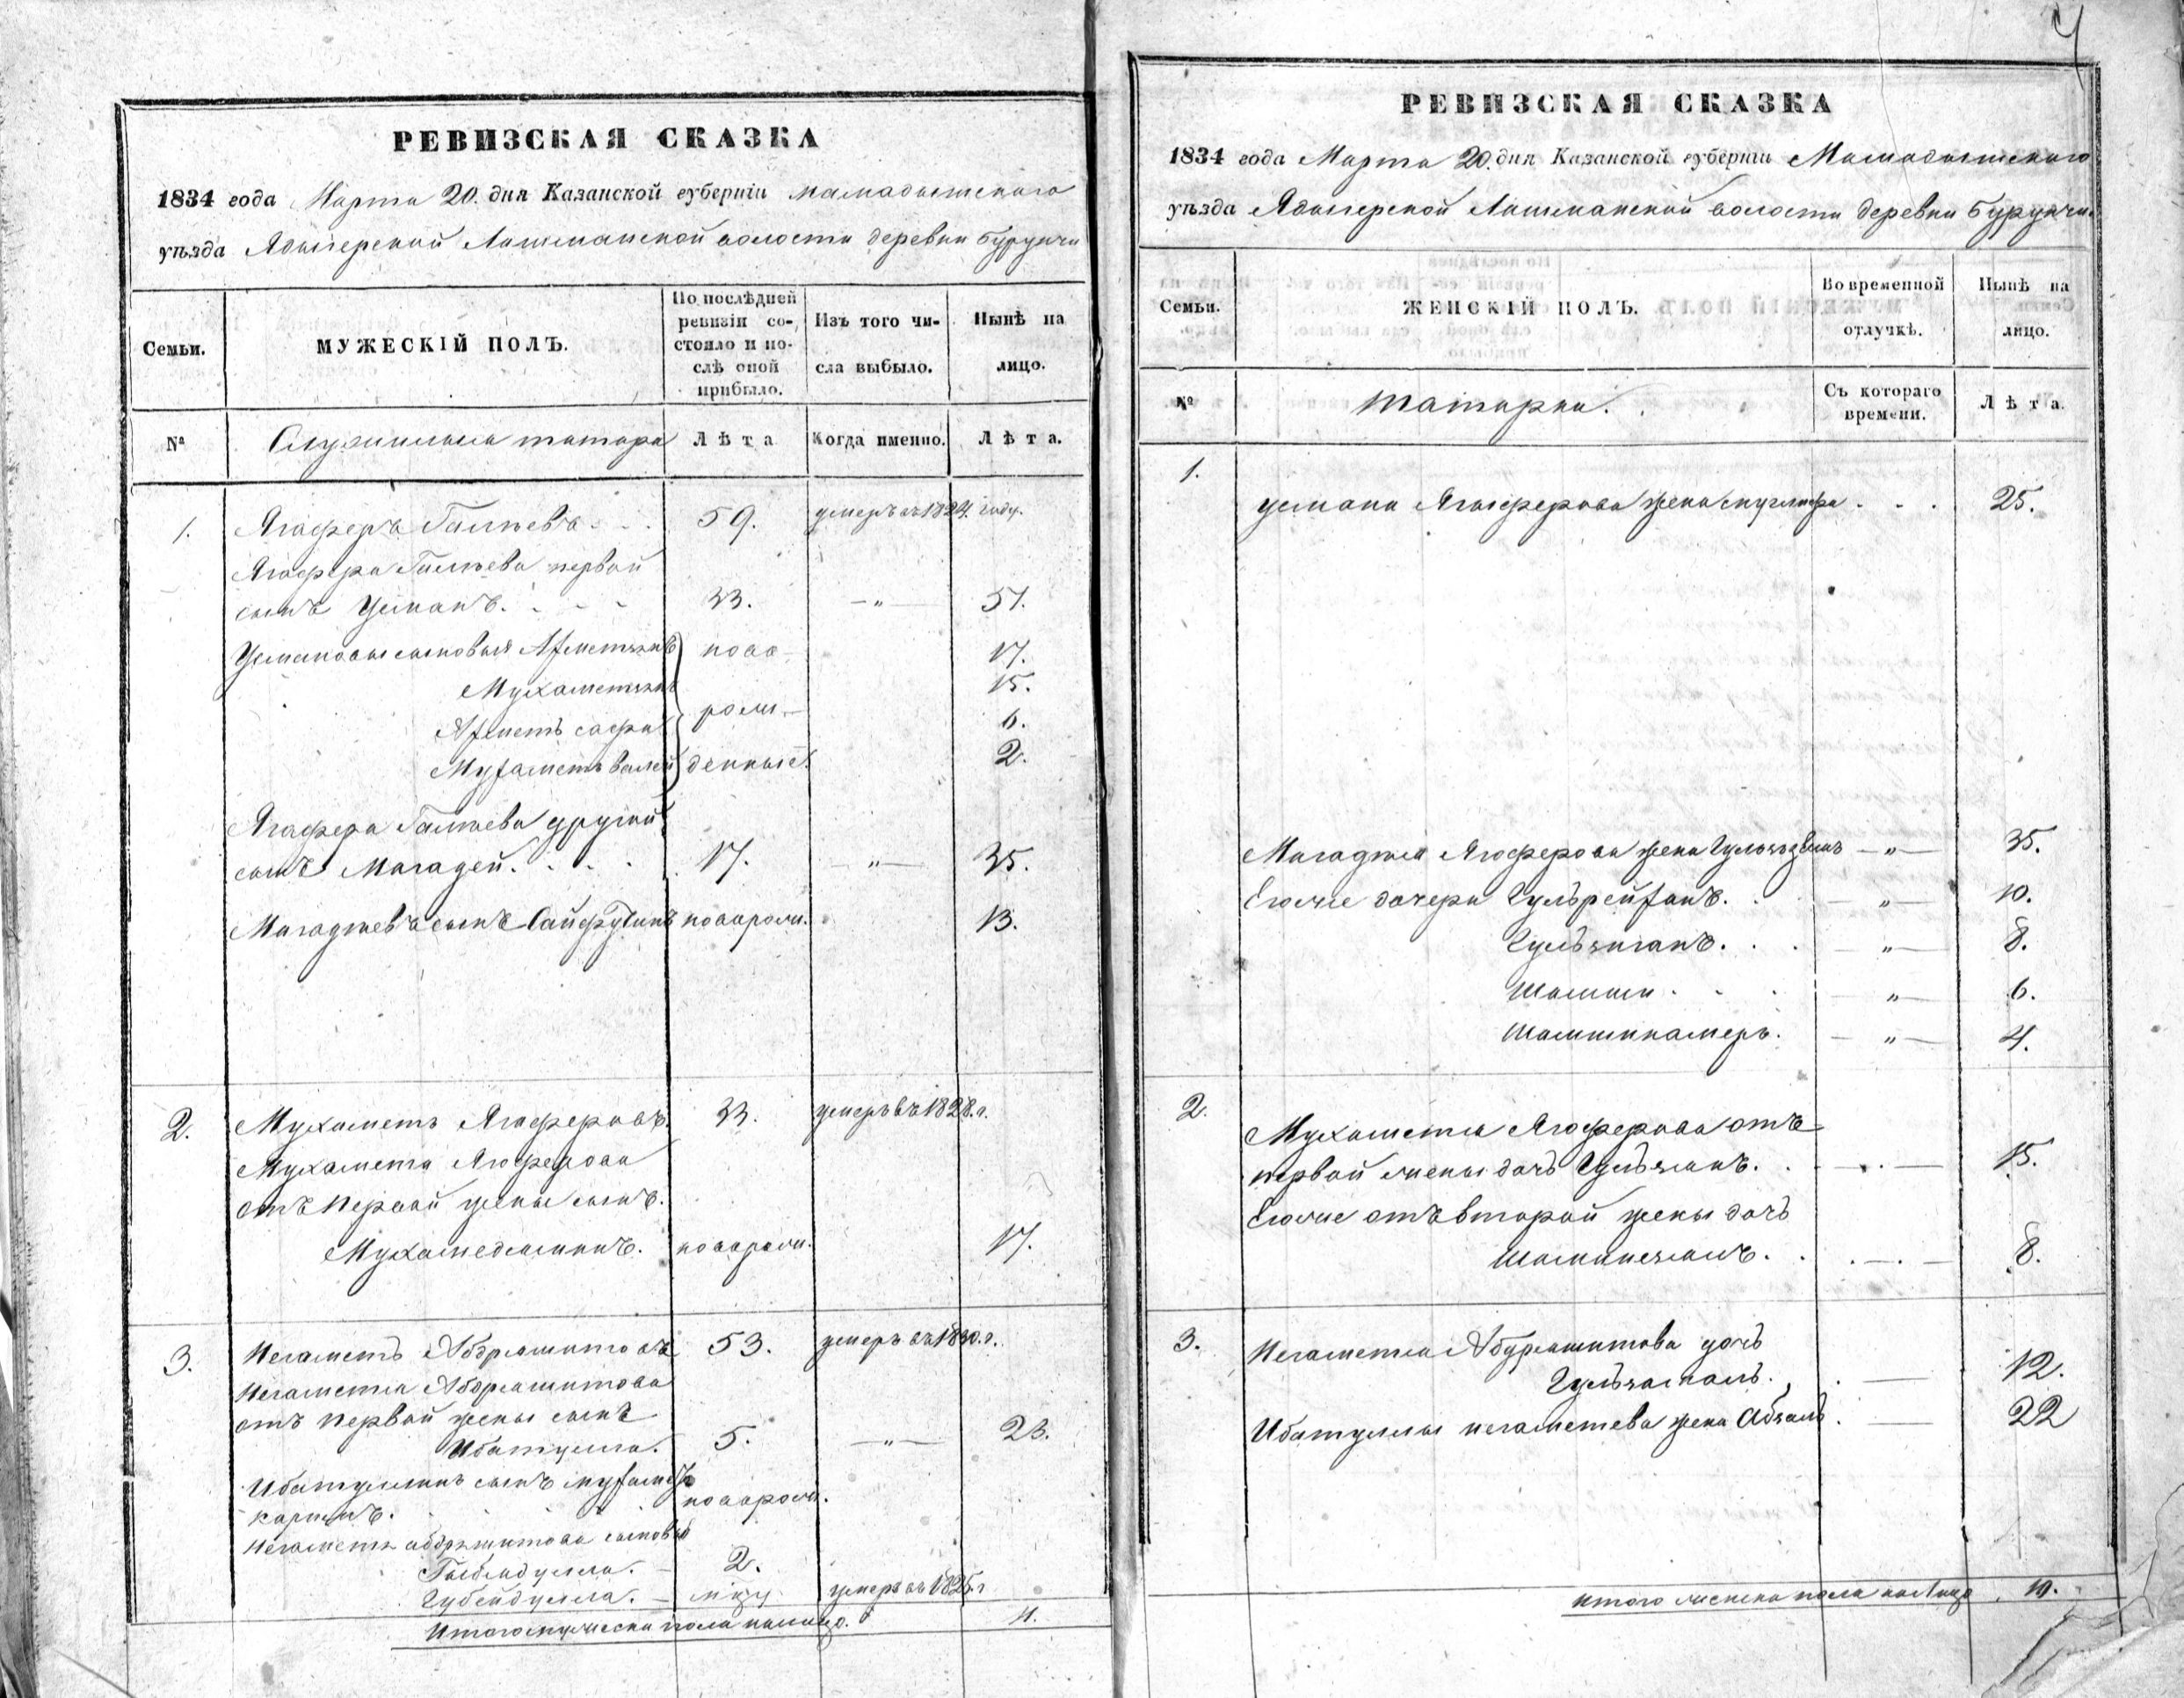 РЕВИЗСКАЯ СКАЗКА
1834 года Марта 20. дня Казанской губерніи мамадышскаго
уѣзда Ядыгерской Лашманской волости деревни Бурунчи
Семьи.
МУЖЕСКІЙ ПОЛЪ.
По послѣдней
ревизіи со-
стояло и по-
слѣ оной
прибыло.
Изъ того чи-
сла выбыло.
Нынѣ на
лицо.
№
Служилыя татара
Лѣта
Когда именно.
Лѣта.
1. Ягаферъ Галѣевъ 59. умеръ въ 1824 году.
Ягафера Галѣева первой
сынъ Усманъ. 33. —„— 51.
Усмановы сыновья Ахметзянъ ново 17.
Мухаметзянъ 15.
Ахметъ сафа рож— 6.
Мухаметъ валей денные. 2.
Ягафера Галѣева другой
сынъ Магадей. 17. —„— 35.
Магадѣевъ сынъ новорож. 13.
2. Мухаметъ Ягаферовъ 33. умеръ въ 1828.г.
Мухамета Ягоферова
отъ первой жены сынъ.
Мухамедаминъ. новорож. 17.
3. Негаметъ Абдряшитовъ 53. умеръ въ 1830.г.
Негаметя Абдряшитова
отъ первой жены сынъ
Ибатулла. 5. —„— 23.
Ибатуллинъ сынъ мухаметъ
новорож.
Негаметя абдряшитова сыновья
2.
Губейдулла. умеръ въ 1825.г
Итого мужеска пола налицо. 11.
РЕВИЗСКАЯ СКАЗКА
1834 года Марта 20. дня Казанской губерніи Мамадышскаго
уѣзда Ядыгерской Лашманской волости деревни Бурунчи.
Семьи.
ЖЕНСКІЙ ПОЛЪ.
Во временной
отлучкѣ.
Нынѣ на
лицо.
№
татарки.
Съ котораго
времени.
Лѣта.
1.
усмана Ягаферова жена 25.
Магадѣя Ягоферова жена —„— 35.
Егоже дочери Гульрейханъ. —„— 10.
—„— 8.
Шамси —„— 6.
Шамсикамеръ. —„— 4.
2.
Мухаметя Ягоферова отъ
первой жены дочь 15.
Егоже отъ второй жены дочь
8.
3. Негаметя Абдряшитова дочь
12.
Ибатуллы негаметева жена 22
итого женска пола налицо 10.